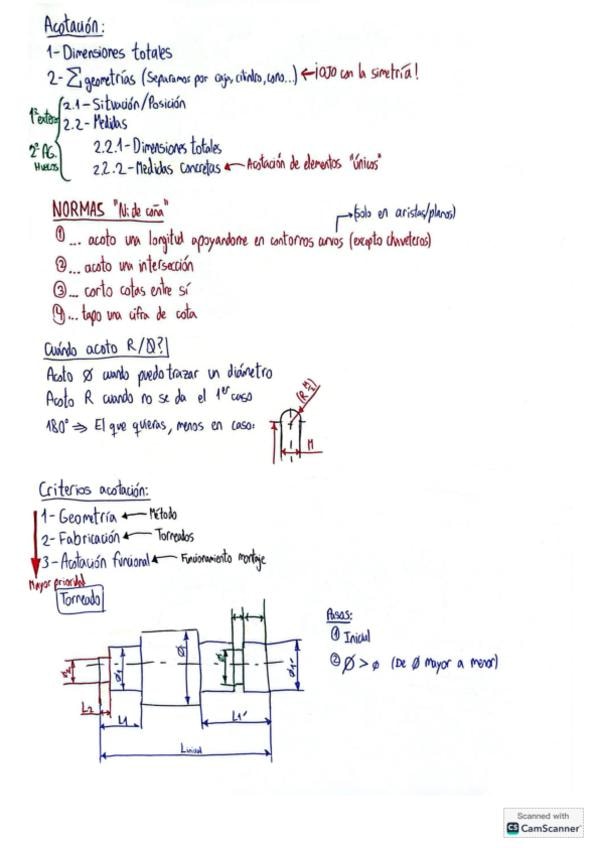 Acotación:
1- Dimensiones totales
2- Σ geometrías (Separamos por caja, cilindro, cono...) ← ¡OJO con la simetría!
1º exter.
2.1- Situación/Posición
2.2- Medidas
2º AG. HUECOS
2.2.1- Dimensiones totales
2.2.2- Medidas concretas ← Acotación de elementos "únicos"
NORMAS "Ni de coña"
(solo en aristas/planos)
① ... acoto una longitud apoyandome en contornos curvos (excepto chaveteros)
② ... acoto una intersección
③ ... corto cotas entre sí
④ ... tapo una cifra de cota
Cuándo acoto R/Ø?
Acoto Ø cuando puedo trazar un diámetro
Acoto R cuando no se da el 1er caso
180° ⇒ El que quieras, menos en caso:
(R M/2)
M
Criterios acotación:
1- Geometría ← Método
2- Fabricación ← Torneados
3- Acotación funcional ← Funcionamiento montaje
Mayor prioridad
Torneado
Pasos:
① Inicial
② Ø > ø (De Ø mayor a menor)
Ø2
Ø1
Ø
Ø
Ø1'
L2
L1
L1'
Linicial
Scanned with
CS CamScanner